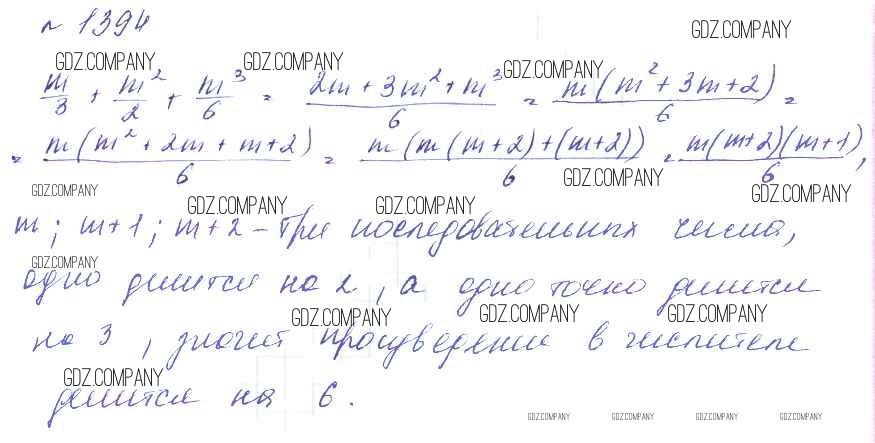 № 1394
GDZ.COMPANY
GDZ.COMPANY GDZ.COMPANY GDZ.COMPANY
m/3 + m²/2 + m³/6 = (2m + 3m² + m³)/6 = m(m² + 3m + 2)/6 =
= m(m² + 2m + m + 2)/6 = m(m(m+2) + (m+2))/6 = m(m+2)(m+1)/6,
GDZ.COMPANY GDZ.COMPANY GDZ.COMPANY
GDZ.COMPANY GDZ.COMPANY
m; m+1; m+2 – три последовательных числа,
GDZ.COMPANY
одно делится на 2, а одно точно делится
GDZ.COMPANY GDZ.COMPANY GDZ.COMPANY
на 3, значит произведение в числителе
GDZ.COMPANY
делится на 6.
GDZ.COMPANY GDZ.COMPANY GDZ.COMPANY GDZ.COMPANY